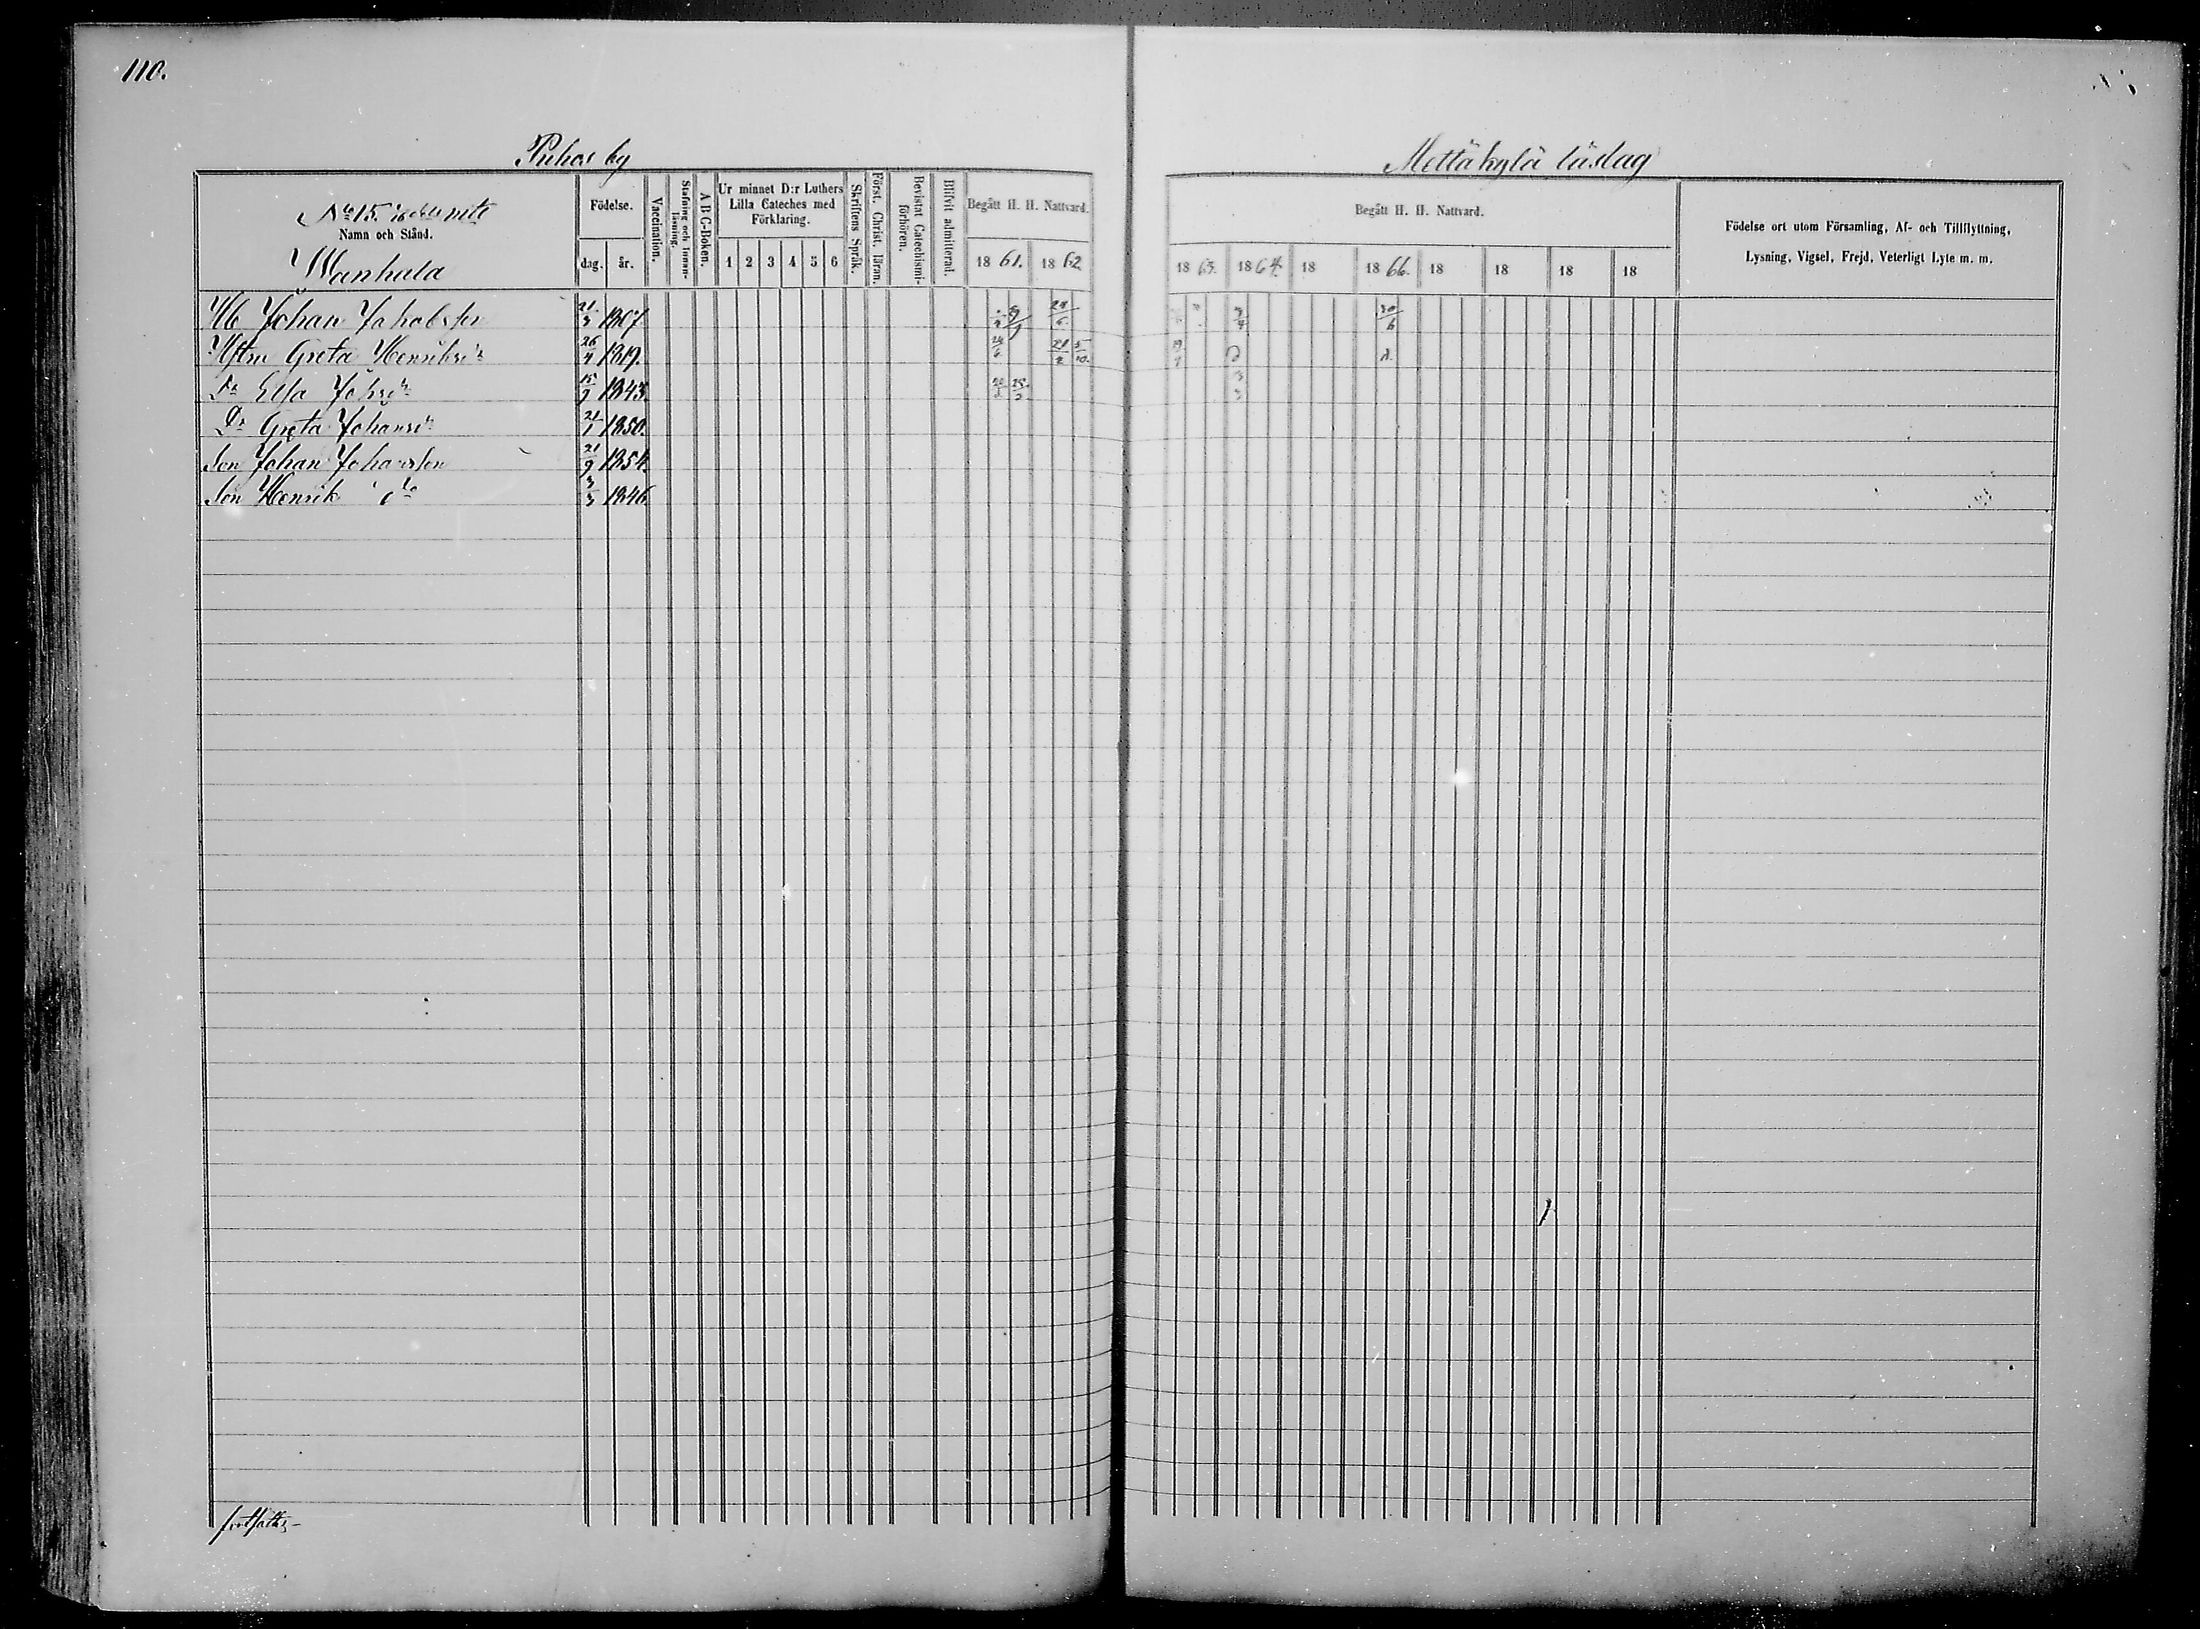 110.
Puhos by
Mettäkylä läslag
No 15. mtl
Namn och Stånd.
Wanhala
Födelse.
dag. år.
Vaccination.
Stafning och Innanläsning.
A B C-Boken.
Ur minnet D:r Luthers Lilla Cateches med Förklaring.
1 2 3 4 5 6
Skriftens Språk.
Först. Christ. läran.
Bevistat Catechismiförhören.
Blifvit admitterad.
Begått H. H. Nattvard.
18 61. 18 62.
Begått H. H. Nattvard.
18 63. 18 64. 18 18 66. 18 18 18 18
Födelse ort utom Församling, Af- och Tillflyttning,
Lysning, Vigsel, Frejd, Veterligt Lyte m. m.
Johan Jakobsson 21/3 1807. 24/6 3/4 30/6
Hstru Greta Henriksdr 26/4 1819. 24/6 21/2 5/10
Dr Elsa Johsdr 15/9 1843. 3/3
Dr Greta Johansdr 21/1 1850.
Son Johan Johansson 21/9 1854.
Son Henrik do 3/3 1846.
fortsättn